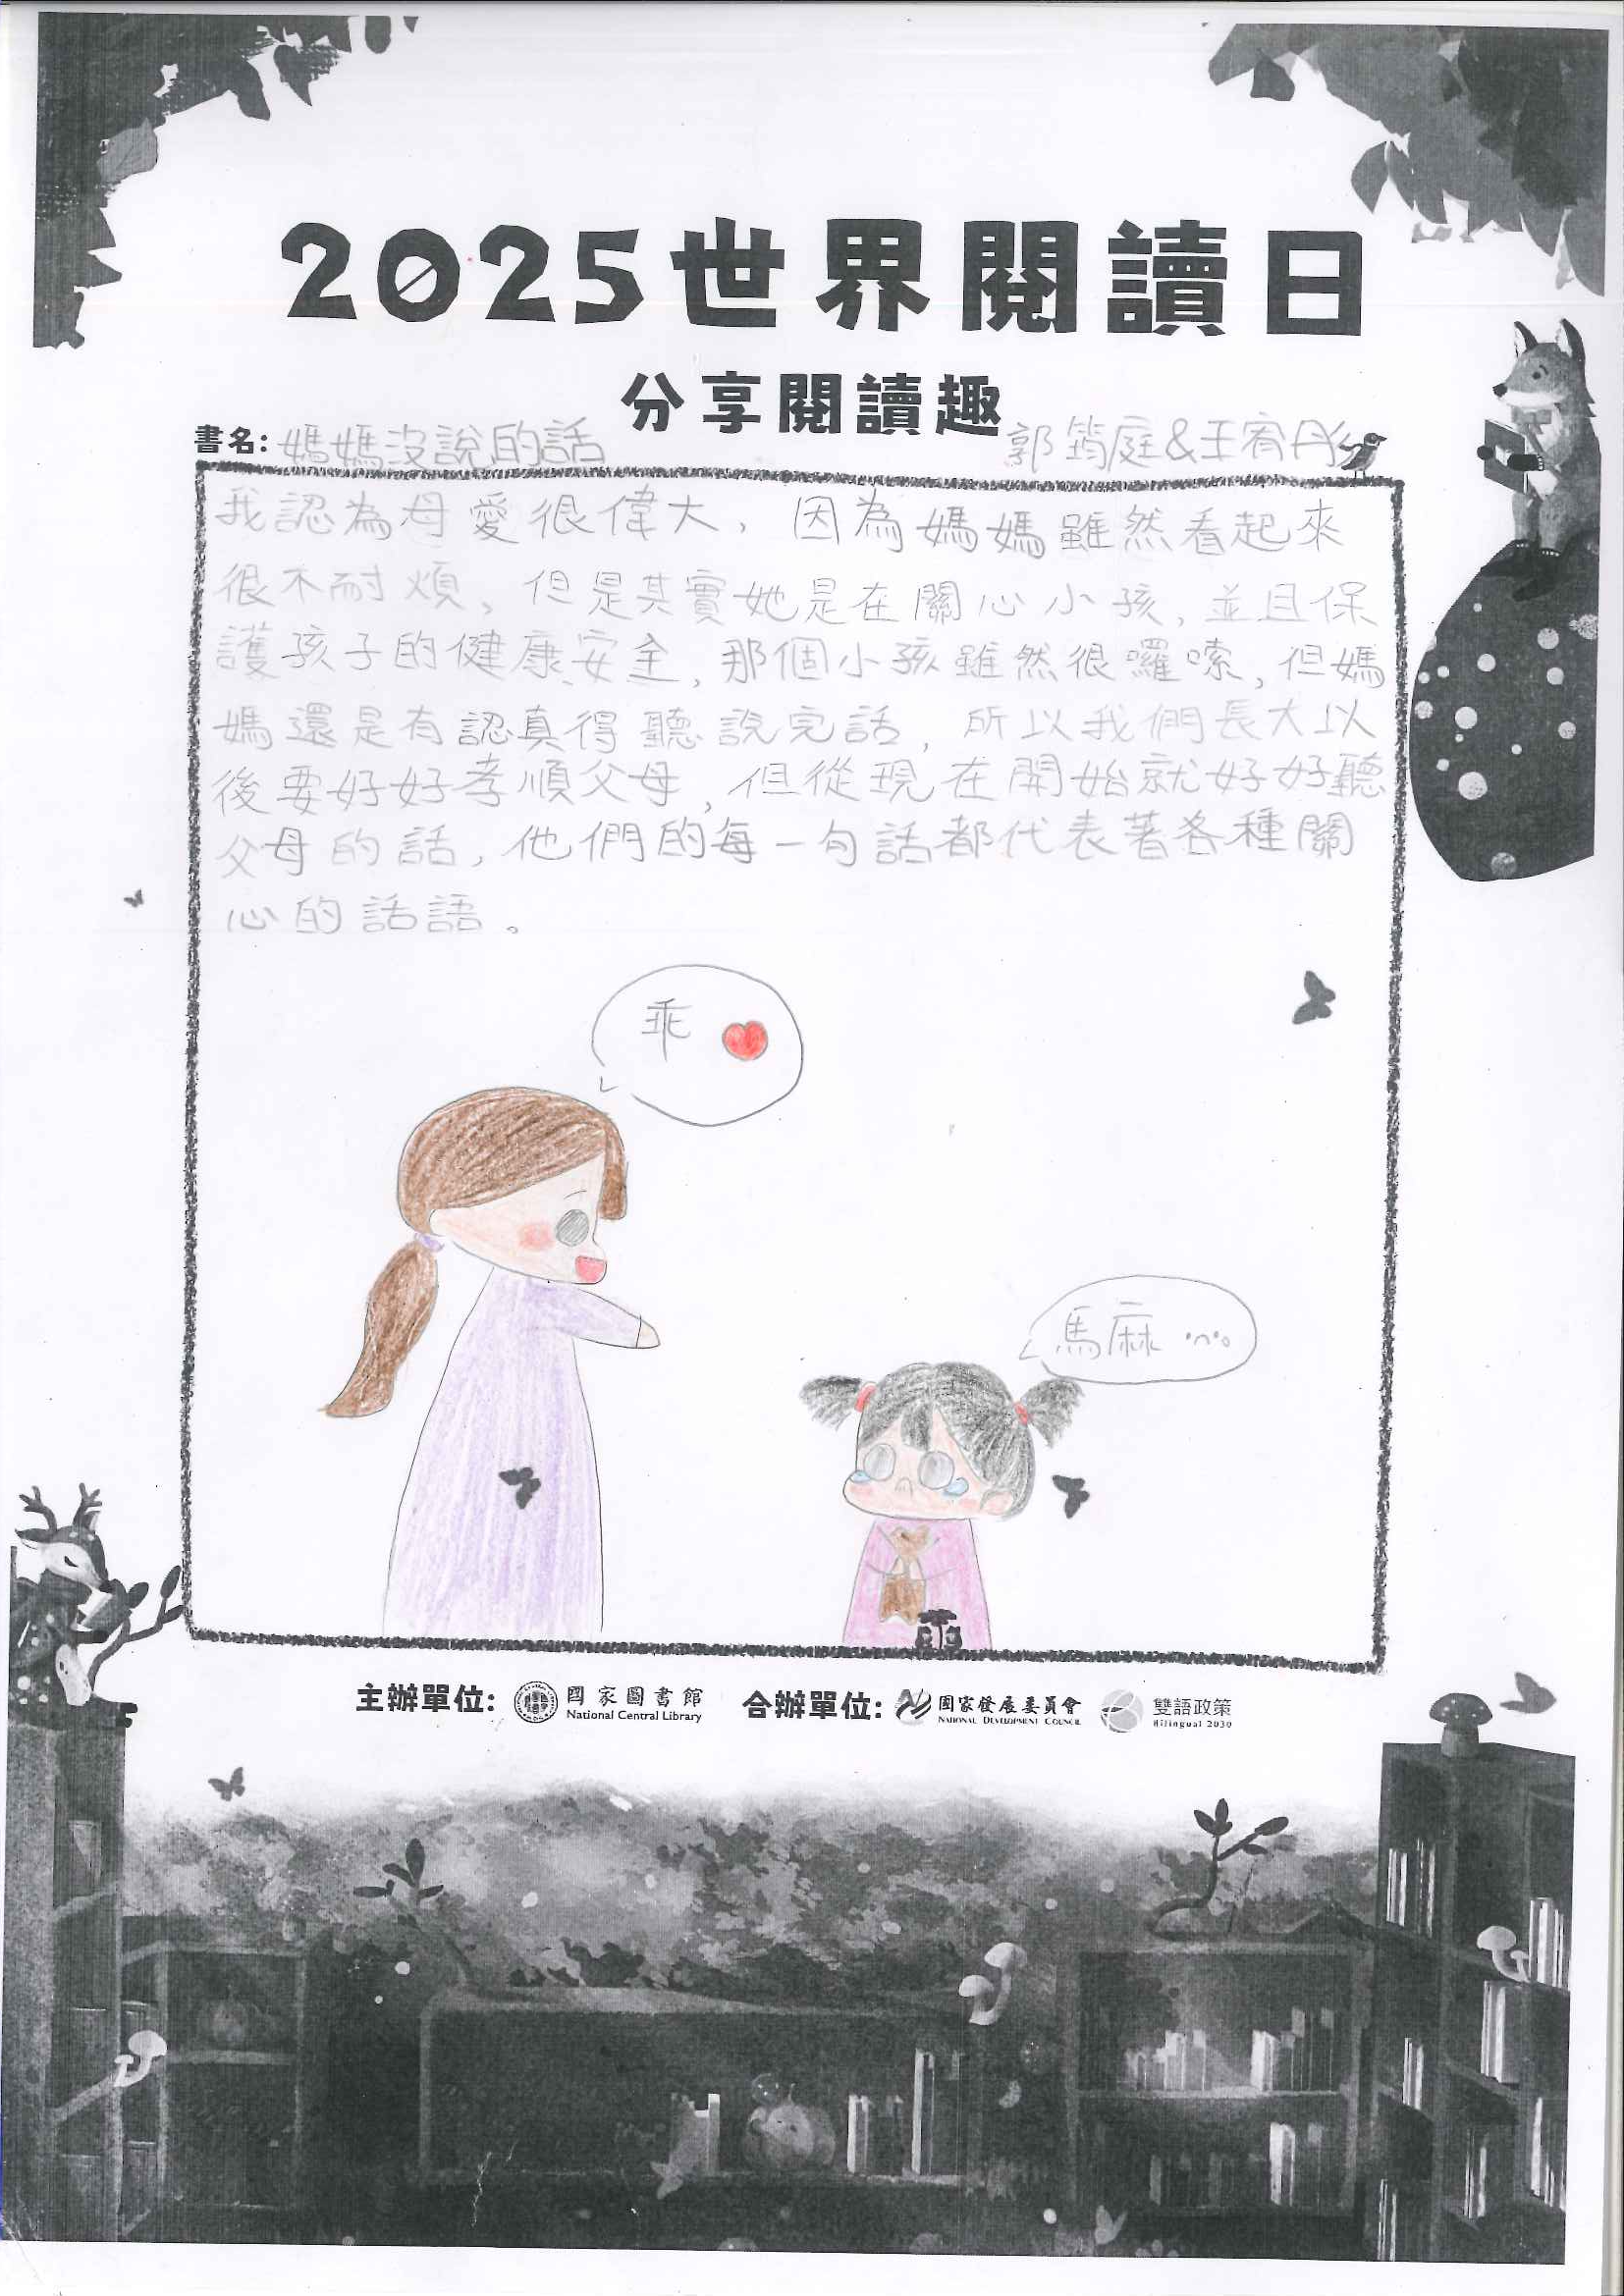 2025世界閱讀日
分享閱讀趣
書名: 媽媽沒說的話
郭筠庭&王宥丹彡
我認為母愛很偉大，因為媽媽雖然看起來
很不耐煩，但是其實她是在關心小孩，並且保
護孩子的健康、安全，那個小孩雖然很囉嗦，但媽
媽還是有認真得聽說完話，所以我們長大以
後要好好孝順父母，但從現在開始就好好聽
父母的話，他們的每一句話都代表著各種關
心的話語。
乖
馬麻
主辦單位: 國家圖書館 National Central Library 合辦單位: 國家發展委員會 NATIONAL DEVELOPMENT COUNCIL 雙語政策 Bilingual 2030